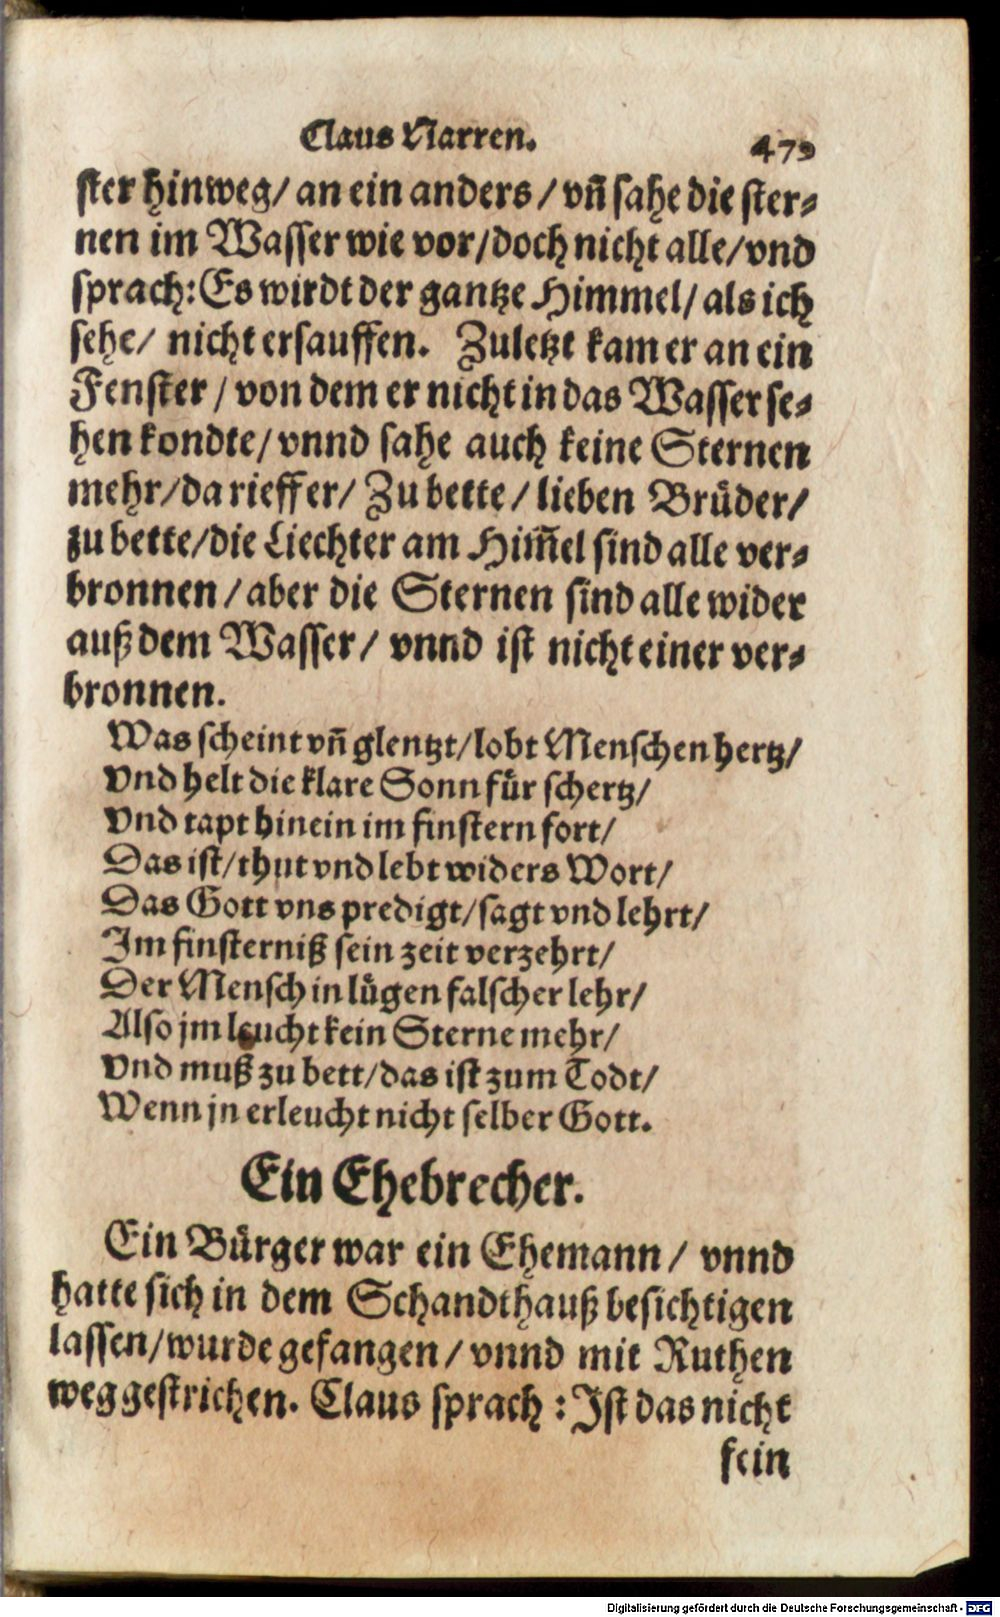 Claus Narren. 479
ster hinweg/ an ein anders/ vñ sahe die ster⸗
nen im Wasser wie vor/ doch nicht alle/ vnd
sprach: Es wirdt der gantze Himmel/ als ich
sehe/ nicht ersauffen. Zuletzt kam er an ein
Fenster/ von dem er nicht in das Wasser se⸗
hen kondte/ vnnd sahe auch keine Sternen
mehr/ da rieff er/ Zu bette/ lieben Brůder/
zu bette/ die Liechter am Him̃el sind alle ver⸗
bronnen/ aber die Sternen sind alle wider
auß dem Wasser/ vnnd ist nicht einer ver⸗
bronnen.
Was scheint vñ glentzt/ lobt Menschen hertz/
Vnd helt die klare Sonn fůr schertz/
Vnd tapt hinein im finstern fort/
Das ist/ thut vnd lebt widers Wort/
Das Gott vns predigt/ sagt vnd lehrt/
Im finsterniß sein zeit verzehrt/
Der Mensch in lůgen falscher lehr/
Also jm leucht kein Sterne mehr/
Vnd muß zu bett/ das ist zum Todt/
Wenn jn erleucht nicht selber Gott.
Ein Ehebrecher.
Ein Bůrger war ein Ehemann/ vnnd
hatte sich in dem Schandthauß besichtigen
lassen/ wurde gefangen/ vnnd mit Ruthen
weg gestrichen. Claus sprach: Ist das nicht
fein
Digitalisierung gefördert durch die Deutsche Forschungsgemeinschaft - DFG